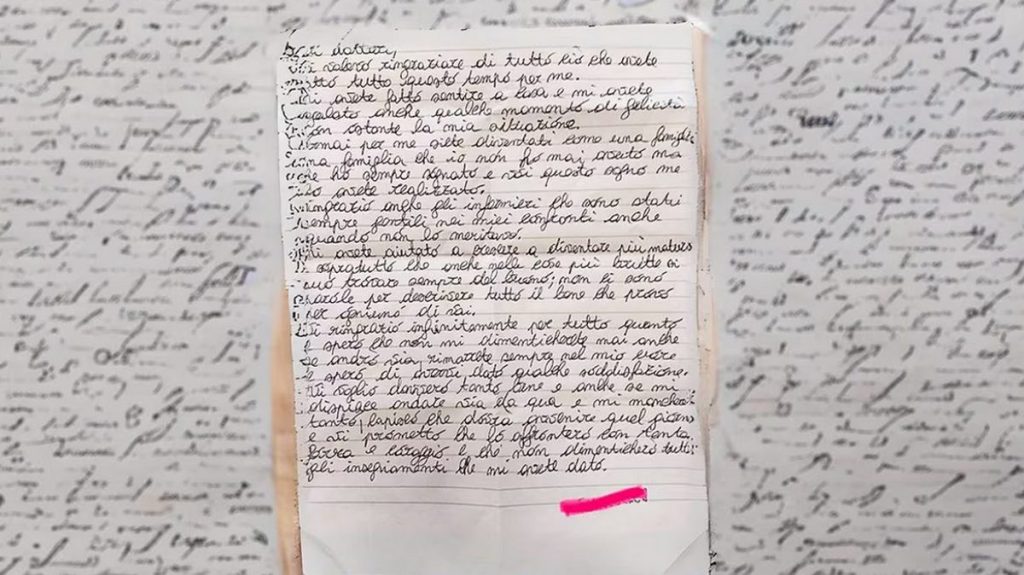 dottori,
volevo ringraziare di tutto ciò che avete
tutto questo tempo per me.
avete fatto sentire a casa e mi avete
regalato anche qualche momento di felicità
non ostante la mia situazione.
Ormai per me siete diventati come una famiglia
una famiglia che io non ho mai avuto ma
che ho sempre sognato e voi questo sogno me
lo avete realizzato.
Ringrazio anche gli infermieri che sono stati
sempre gentili nei miei confronti anche
quando non lo meritavo.
Mi avete aiutato a crescere a diventare più matura
sopratutto che anche nelle cose più brutte si
può trovare sempre del buono; non ci sono
parole per descrivere tutto il bene che provo
per ognuno di voi.
Vi ringrazio infinitamente per tutto quanto
e spero che non mi dimenticherete mai anche
se andrò via, rimarrete sempre nel mio cuore
e spero di avervi dato qualche soddisfazione.
Vi voglio davvero tanto bene e anche se mi
dispiace andare via da qua e mi mancherà
tanto, che dovrà avvenire quel giorno
e vi prometto che lo affronterò con tanta
forza e coraggio e che non dimenticherò tutti
gli insegnamenti che mi avete dato.